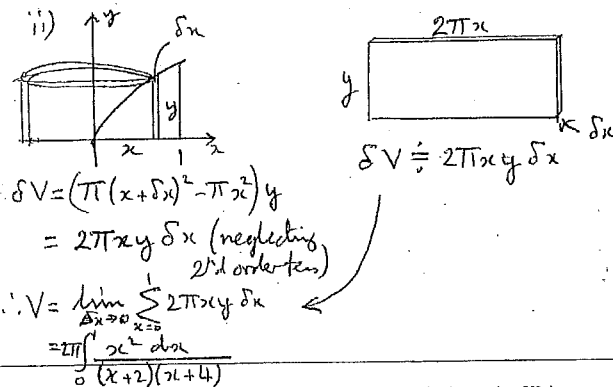 ii)
y
δx
y
x
1
x
2πx
y
δx
δV ≑ 2πxy δx
δV = (π(x+δx)² - πx²) y
= 2πxy δx (neglecting
2nd order terms)
∴ V = lim Δx→0 Σ x=0 1 2πxy δx
= 2π ∫ 0 1 x² dx / (x+2)(x+4)